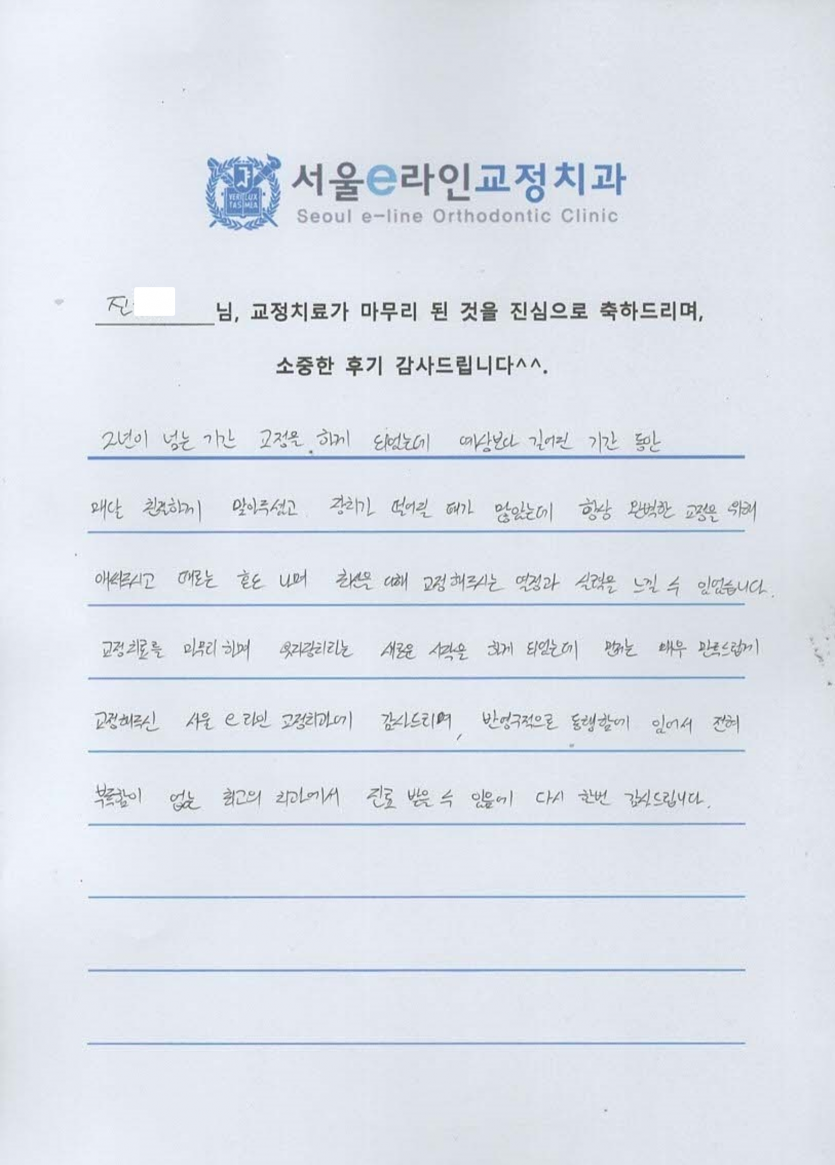 VERI LUX TAS MEA
서울e라인교정치과
Seoul e-line Orthodontic Clinic
진 님, 교정치료가 마무리 된 것을 진심으로 축하드리며,
소중한 후기 감사드립니다^^.
2년이 넘는 기간 교정을 하게 되었는데 예상보다 길어진 기간 동안
매달 친절하게 맞아주셨고 장치가 떨어질 때가 많았는데 항상 완벽한 교정을 위해
애써주시고 때로는 혼도 내며 최선을 다해 교정해주시는 열정과 실력을 느낄 수 있었습니다.
교정치료를 마무리하며 유지장치라는 새로운 시작을 하게 되었는데 먼저는 매우 만족스럽게
교정해주신 서울 e라인 교정치과에 감사드리며, 반영구적으로 동행함에 있어서 전혀
부족함이 없는 최고의 치과에서 진료 받을 수 있음에 다시 한번 감사드립니다.